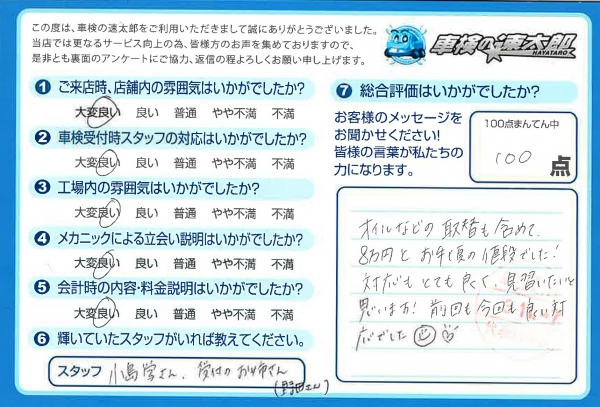 この度は、車検の速太郎をご利用いただきまして誠にありがとうございました。
当店では更なるサービス向上の為、皆様方のお声を集めておりますので、
是非とも裏面のアンケートにご協力、返信の程よろしくお願い申し上げます。
車検の速太郎
HAYATARO
1 ご来店時、店舗内の雰囲気はいかがでしたか?
大変良い 良い 普通 やや不満 不満
2 車検受付時スタッフの対応はいかがでしたか?
大変良い 良い 普通 やや不満 不満
3 工場内の雰囲気はいかがでしたか?
大変良い 良い 普通 やや不満 不満
4 メカニックによる立会い説明はいかがでしたか?
大変良い 良い 普通 やや不満 不満
5 会計時の内容・料金説明はいかがでしたか?
大変良い 良い 普通 やや不満 不満
6 輝いていたスタッフがいれば教えてください。
スタッフ 小島学さん、受付のお姉さん
(野田さん)
7 総合評価はいかがでしたか?
お客様のメッセージを
お聞かせください!
皆様の言葉が私たちの
力になります。
100点まんてん中
100 点
オイルなどの取替も含めて、
8万円とお手頃の値段でした!
対応もとても良く、見習いたいと
思います! 前回も今回も良い対
応でした